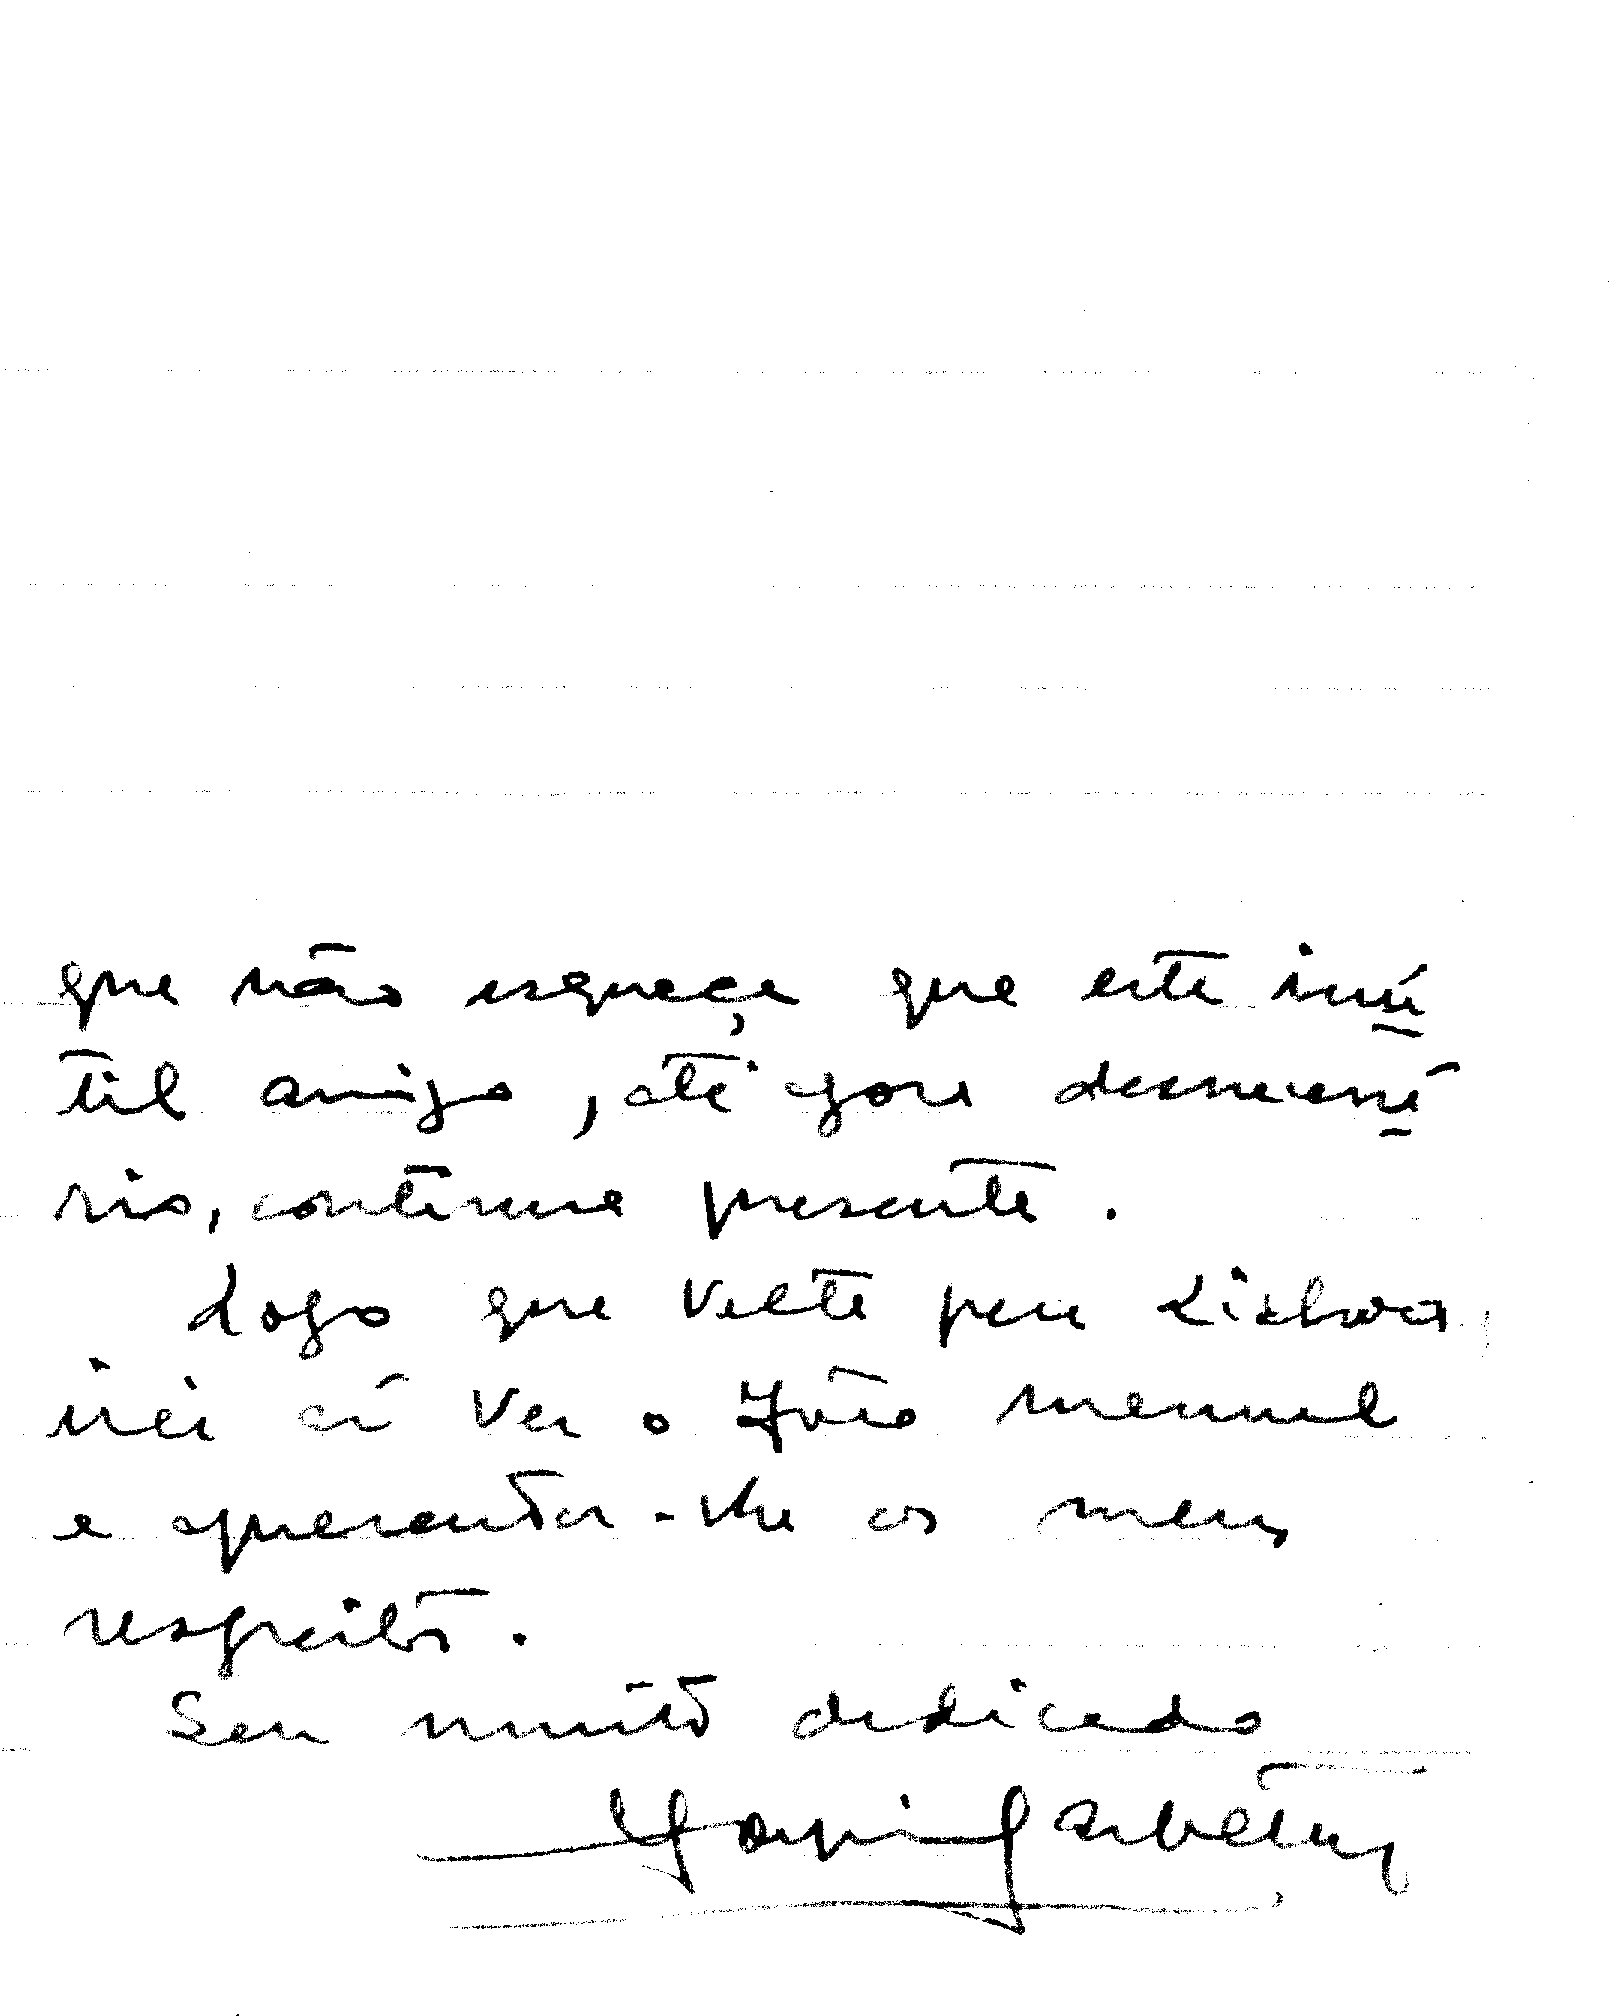 que não esqueça que este inú
til amigo, até agora desnecessá
rio, continua presente.
Logo que volte para Lisboa
irei aí ver o João Manuel
e apresentar-lhe os meus
respeitos.
Seu muito dedicado